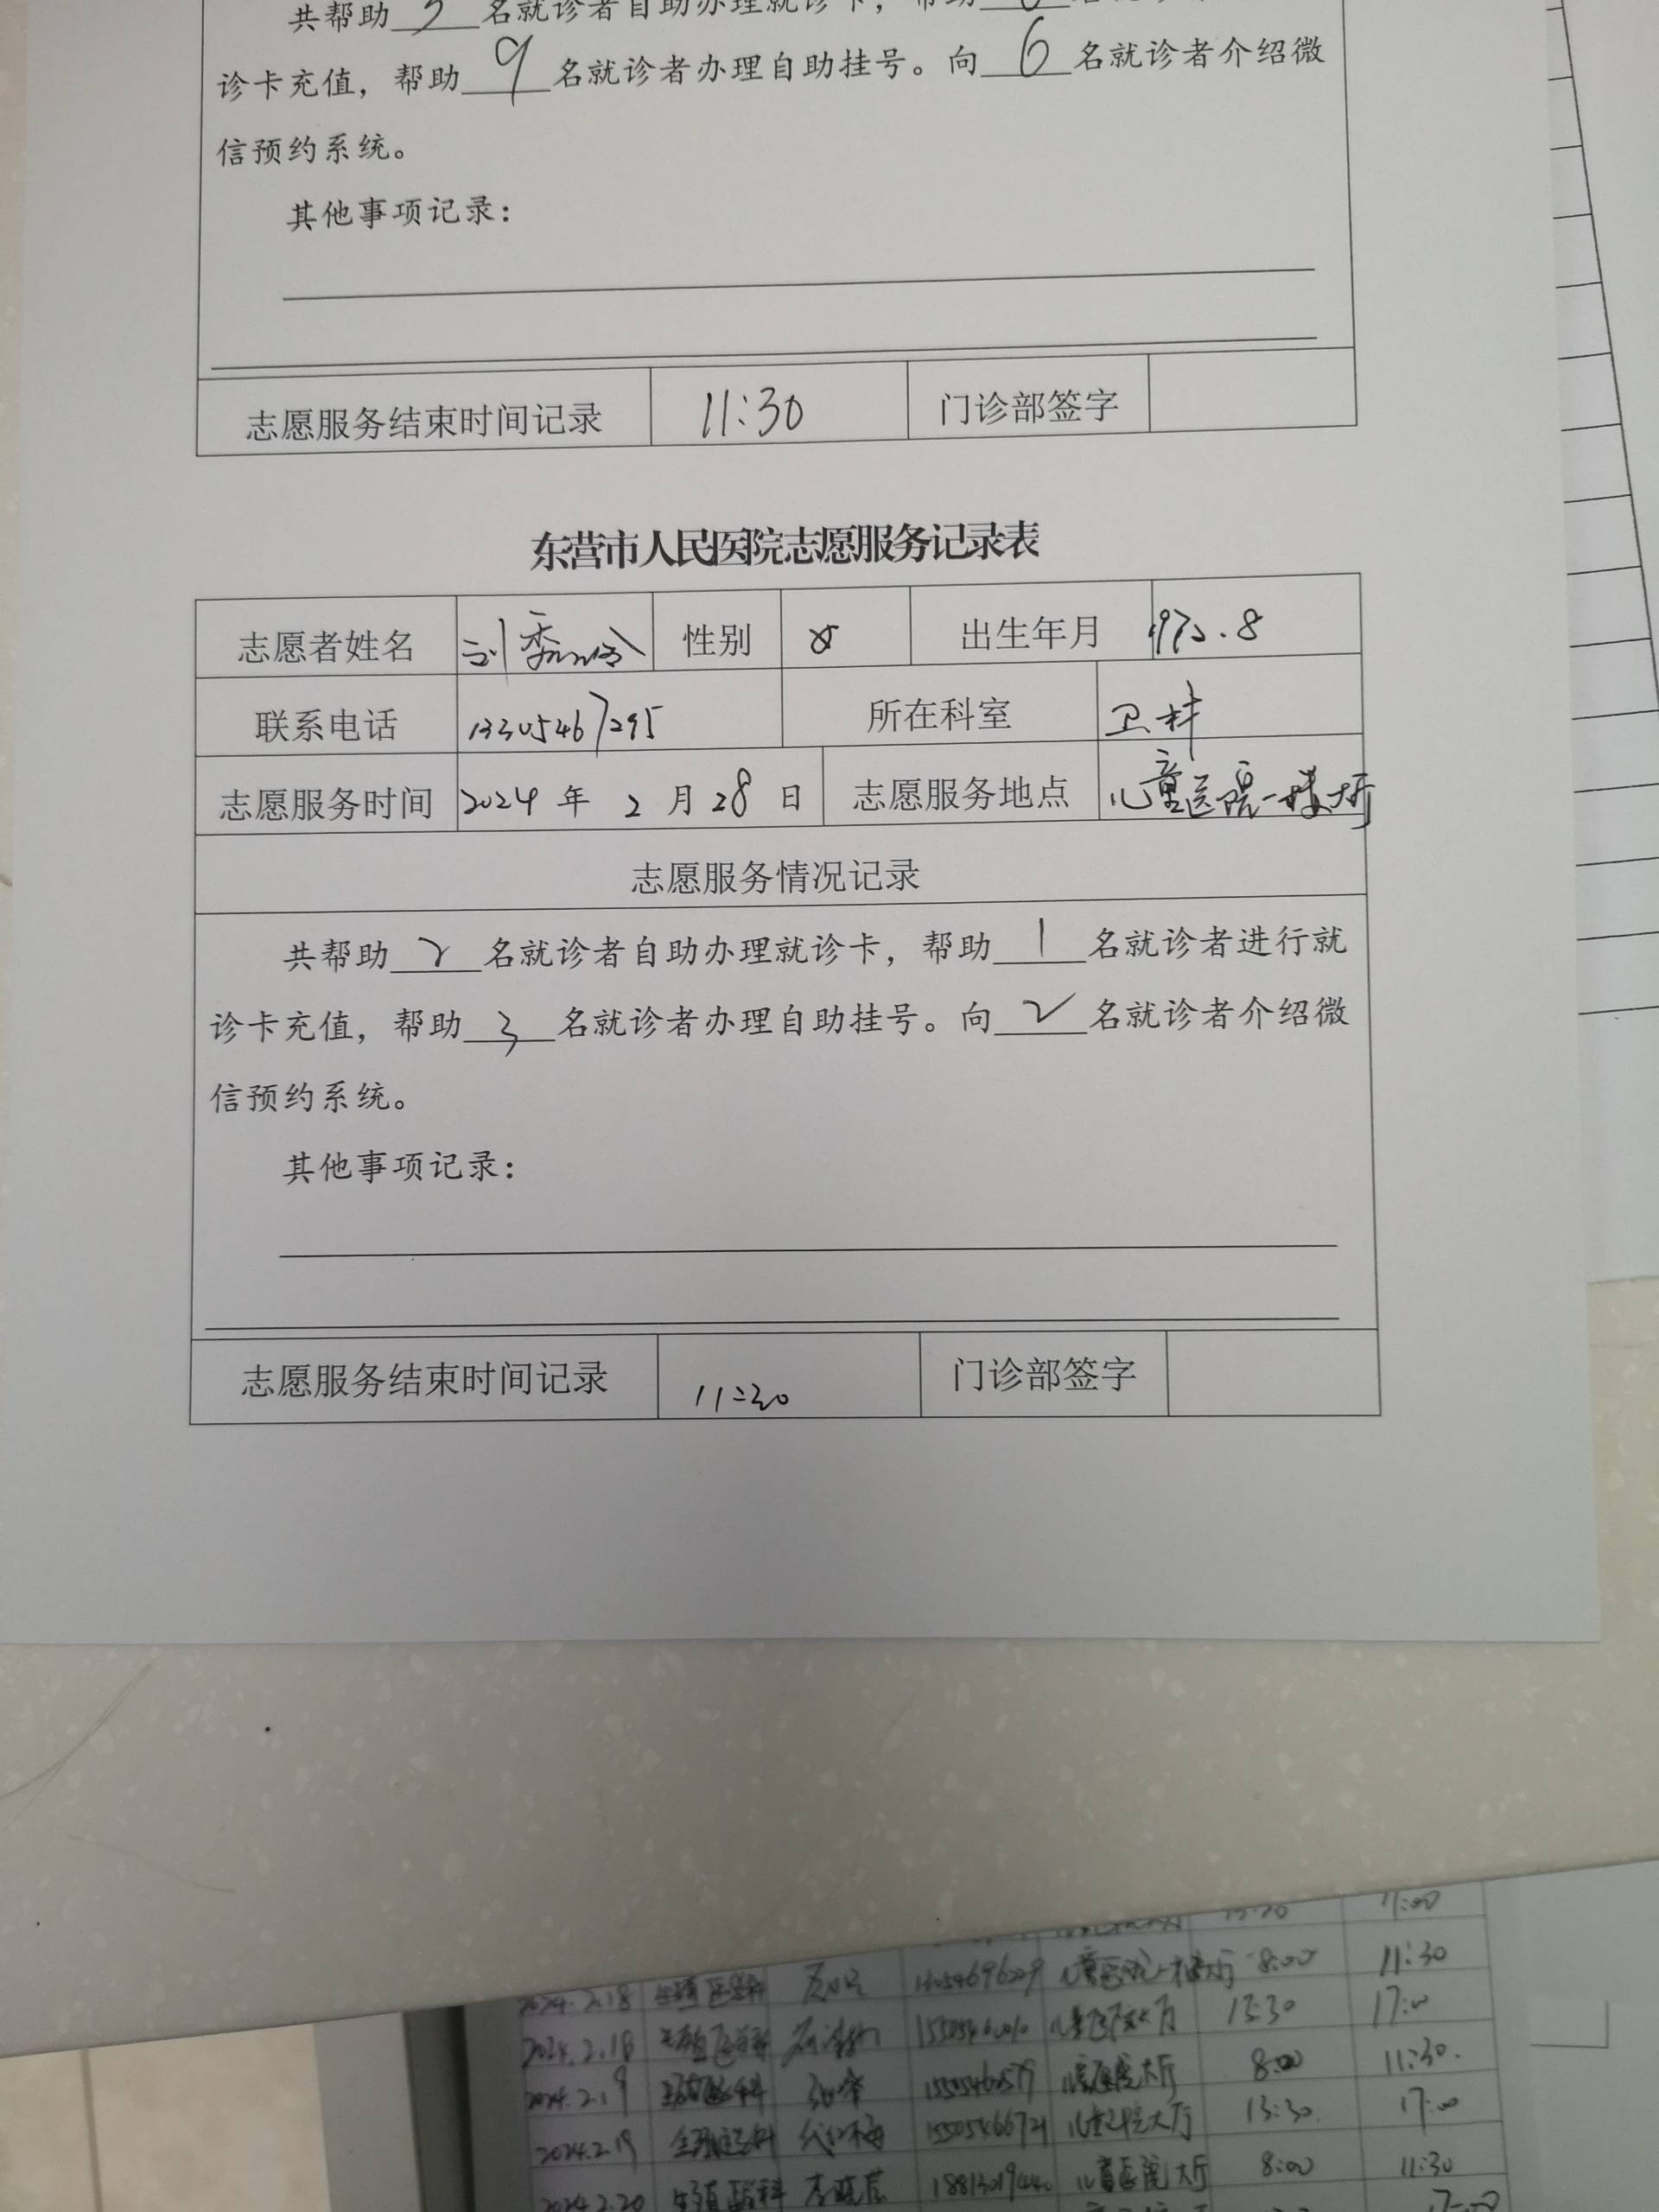 共帮助 名就诊者自助办理就诊卡，帮助
诊卡充值，帮助9名就诊者办理自助挂号。向6名就诊者介绍微
信预约系统。
其他事项记录：
志愿服务结束时间记录 11:30 门诊部签字
东营市人民医院志愿服务记录表
志愿者姓名 刘秀玲 性别 女 出生年月 1972.8
联系电话 13305467295 所在科室 卫材
志愿服务时间 2024年2月28日 志愿服务地点 儿童医院一楼大厅
志愿服务情况记录
共帮助2名就诊者自助办理就诊卡，帮助1名就诊者进行就
诊卡充值，帮助3名就诊者办理自助挂号。向2名就诊者介绍微
信预约系统。
其他事项记录：
志愿服务结束时间记录 11:30 门诊部签字
17:00
2024.2.18 生殖医学科 儿童医院一楼大厅 8:00 11:30
2024.2.18 生殖医学科 儿童医院大厅 13:30 17:00
2024.2.19 生殖医学科 儿童医院大厅 8:00 11:30.
2024.2.19 生殖医学科 15505466721 儿童医院大厅 13:30 17:00
2024.2.20 生殖医学科 儿童医院大厅 8:00 11:30
17:00